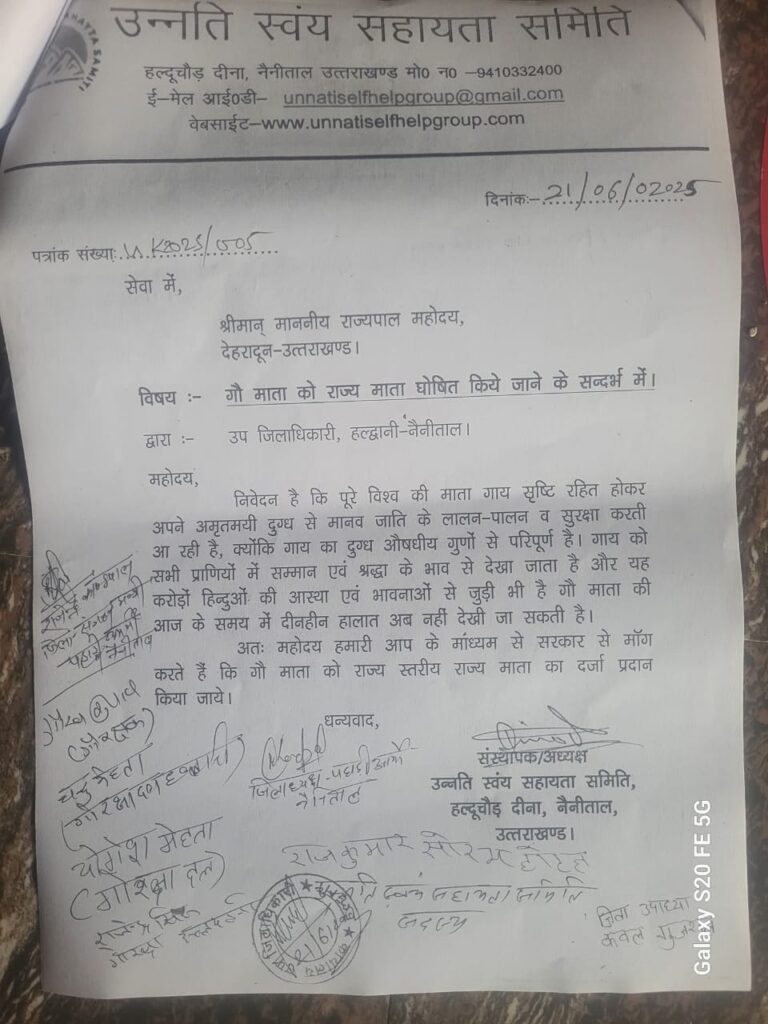 उन्नति स्वंय सहायता समिति
हल्दूचौड़ दीना, नैनीताल उत्तराखण्ड मो0 न0 –9410332400
ई–मेल आई0डी– unnatiselfhelpgroup@gmail.com
वेबसाईट–www.unnatiselfhelpgroup.com
दिनांकः–21/06/02025
पत्रांक संख्याः
सेवा में,
श्रीमान् माननीय राज्यपाल महोदय,
देहरादून-उत्तराखण्ड।
विषय :- गौ माता को राज्य माता घोषित किये जाने के सन्दर्भ में।
द्वारा :- उप जिलाधिकारी, हल्द्वानी-नैनीताल।
महोदय,
निवेदन है कि पूरे विश्व की माता गाय सृष्टि रहित होकर
अपने अमृतमयी दुग्ध से मानव जाति के लालन-पालन व सुरक्षा करती
आ रही है, क्योंकि गाय का दुग्ध औषधीय गुणों से परिपूर्ण है। गाय को
सभी प्राणियों में सम्मान एवं श्रद्धा के भाव से देखा जाता है और यह
करोड़ों हिन्दुओं की आस्था एवं भावनाओं से जुड़ी भी है गौ माता की
आज के समय में दीनहीन हालात अब नहीं देखी जा सकती है।
अतः महोदय हमारी आप के माध्यम से सरकार से मॉग
करते हैं कि गौ माता को राज्य स्तरीय राज्य माता का दर्जा प्रदान
किया जाये।
धन्यवाद,
संस्थापक/अध्यक्ष
उन्नति स्वंय सहायता समिति,
हल्दूचौड़ दीना, नैनीताल,
उत्तराखण्ड।
जिलाध्यक्ष-पहाड़ी आर्मी
नैनीताल
योगेश मेहता
(गौरक्षा दल)
राजकुमार
सदस्य
Galaxy S20 FE 5G